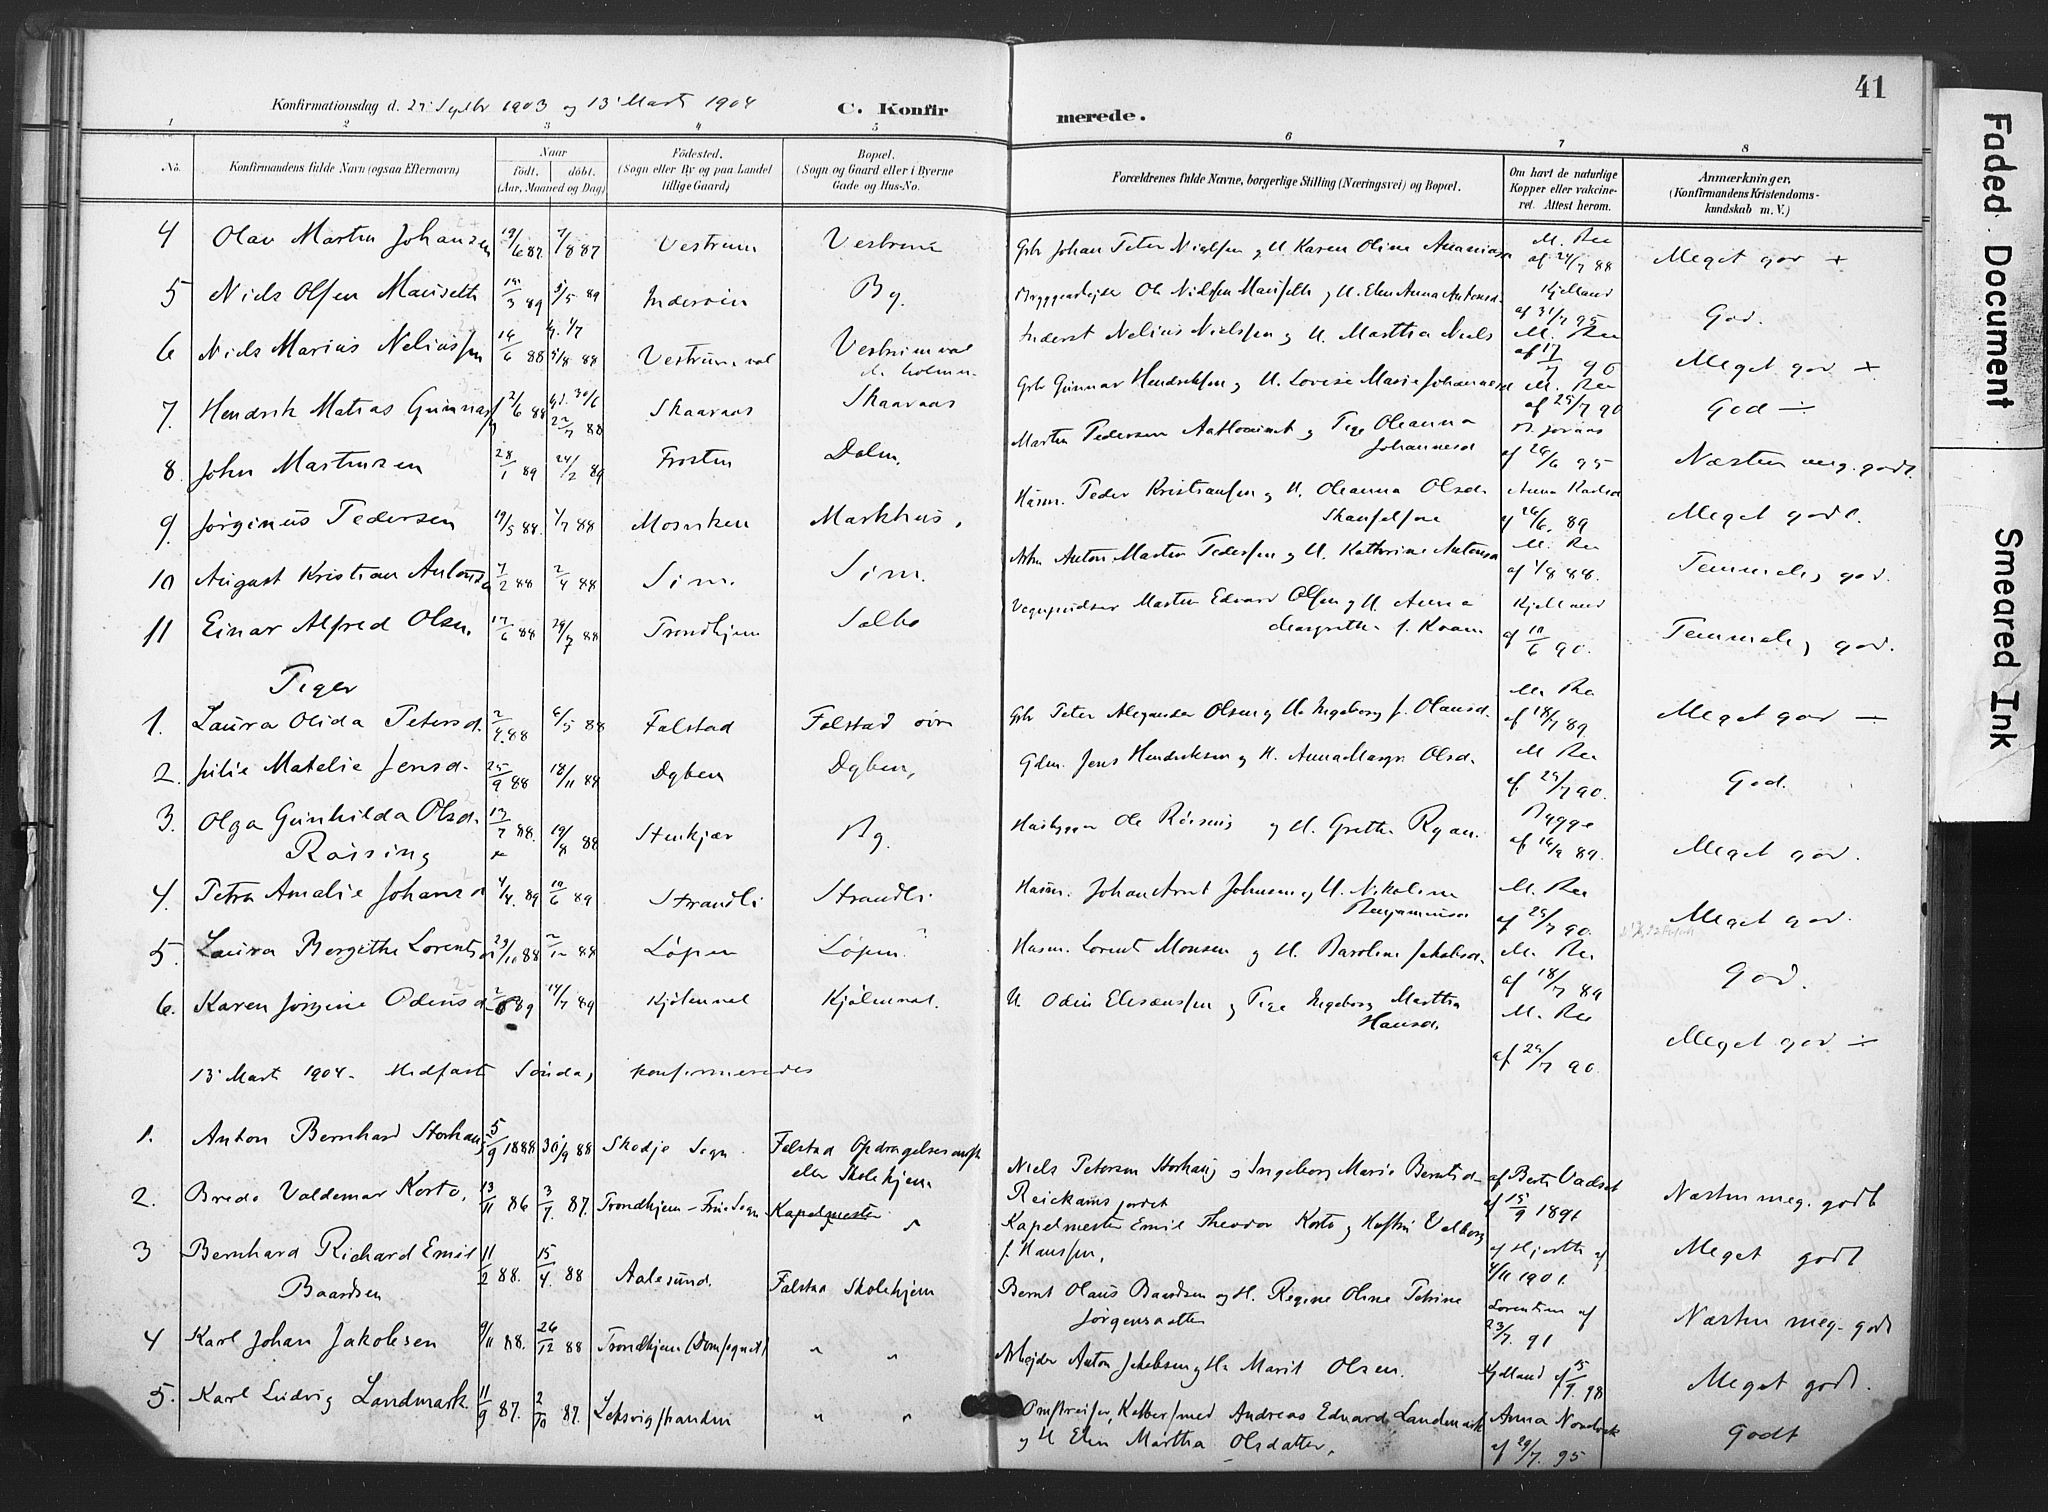 41
Konfirmationsdag d. 27' Septbr 1903 og 13' Marts 1904 C. Konfirmerede.
1 2 3 4 5 6 7 8
No. Konfirmandens fulde Navn (ogsaa Efternavn) Naar født. døbt. (Aar, Maaned og Dag) Fødested. (Sogn eller By og paa Landet tillige Gaard) Bopæl. (Sogn og Gaard eller i Byerne Gade og Hus-No. Forældrenes fulde Navne, borgerlige Stilling (Næringsvei) og Bopæl. Om havt de naturlige Kopper eller vaccineret. Attest herom. Anmærkninger. (Konfirmandens Kristendomskundskab m. V.)
4 Olav Martin Johansen 19/6 87 7/8 87 Vestrum Vestrum Gbr Johan Peter Nielsen og H. Karen Oline M. Ree af 24/7 88 Meget god +
5 Niels Olsen Mauseth 3 89 /5 89 Inderøen By. Bryggearbejder Ole Nielsen Mauseth og H. Elen Anna Antonsd. Kjelland af 31/7 95 God.
6 Niels Marius Neliussen 6 88 5/8 88 Vestrumval Vestrumval Inderst Nelius Nielsen og H. Martha Niels M. Ree af 17/7 90 Meget god +
7. Hendrik Matias Gunnarsen 2/6 88 22/7 88 Skaaraas Skaaraas Gbr Gunnar Hendriksen og H. Lovise Marie Johannesd M. Ree af 29/7 90 God ÷
8 John Martinsen 28/1 89 24/2 89 Frosten Dalen. Martin Pedersen og Pige Oleanna Johannesd af 26/6 95 Næsten meg. godt.
9. Jørginus Pedersen 19/5 88. 1/7 88 Mosviken Markhus. Husm. Peder Kristiansen og H. Oleanna Olsd. Anna Karlsd af 26/6. 89 Meget godt.
10 August Kristian Antonsen 7/2 88 2/4 88 Sim. Sim. Arb. Anton Martin Pedersen og H. Kathrine Antonsd M. Ree af 1/8 88. Temmelig god.
11 Einar Alfred Olsen. 17/6 88 29/7 88 Trondhjem Salbe Martin Edvard Olsen og H. Anna Margrethe f. Kvam Kjelland af 6 90. Temmelig god.
Piger
1. Laura Olida Petersd. 2/4 88 6/5 88 Falstad Falstad øvre Gbr Peter Alexander Olsen og H. Ingeborg f. Olausd. M. Ree af 18/7 89. Meget god ÷
2. Julie Matelie Jensd. 25/9 88 18/11 88 Dyben Dyben, Gdm. Jens Hendriksen og H. Anna Margr. Olsd. M. Ree af 29/7 90. God.
3. Olga Gunhilda Olsd. Røising 7 88. 19/8 88 Stenkjær By. Ole Røising og H. Grethe Ryan. Bygge af 16/9 89. Meget god.
4. Petra Amalie Johansd 4/4. 89 10/6 89 Strandli Strandli Husm. Johan Arnt Johnsen og H. Nikoline Benjaminsd M. Ree af 29/7 90 Meget god.
5. Laura Bergithe Lorentsd 23/11 88 2/12 88 Løpen Løpen Husm. Lorent Monsen og H. Baroline Jakobsd. M. Ree af 18/7 89 God.
6. Karen Jørgine Odensd 89 14/7 89 Kjølenval Kjølenval. U. Odin Eliseussen og Pige Ingeborg Martha Hansd. M. Ree af 29/7 90. Meget god ÷
13' Mart 1904. Midfaste Søndag konfirmeredes
1. Anton Bernhard Storhaug 5/9 1888 30/9 88 Skodje Sogn. Falstad Opdragelsesanst eller Skolehjem Niels Petersen Storhaug og Ingeborg Marie Berntsd. af Berte Vadset af 15/9 1891 Næsten meg. godt
2. Bredo Valdemar Korto. 13/11 86 3/7. 87. Trondhjem - Frue Sogn Kapelmester " Kapelmester Emil Theodor Korto og Hustru Valborg f. Hanssen, af Hjorth af 4/11 1901. Meget godt
3 Bernhard Richard Emil Baardsen 11/2 88. 15/4. 88 Aalesund. Falstad Skolehjem Bernt Olaus Baardsen og H. Regine Oline Petrine Jørgensdatter Lorentsen af 23/7. 91 Næsten meg. godt
4 Karl Johan Jakobsen 9/11 88. 26/12 88 Trondhjem (Domsognet) " " Arbejder Anton Jakobsen og H. Marit Olsen. Kjelland af 15/9. 98 Meget godt.
5. Karl Ludvig Landmark 11/9 87. 2/10 87. Leksvigstranden " " Omstreifer, Kobbersmed Andreas Edvard Landmark og H Elen Martha Olsdatter, Anna Nordvik af 29/7. 95 Godt
Faded Document
Smeared Ink